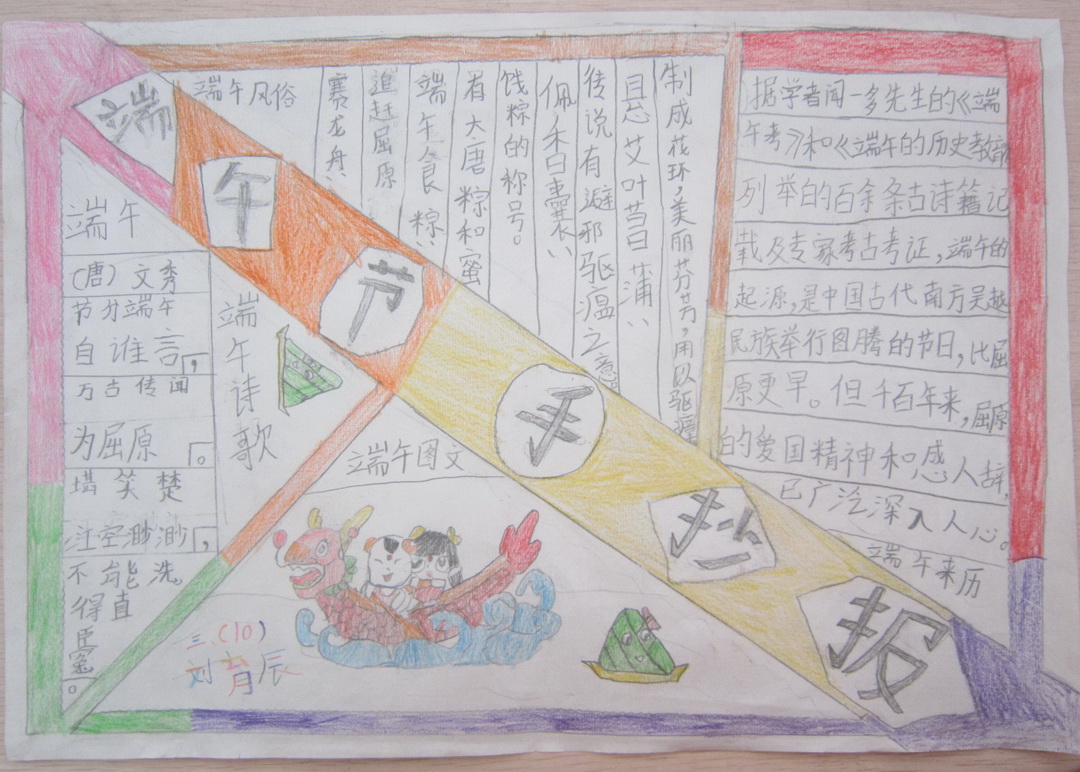 端午节手抄报
端午
(唐)文秀
节分端午
自谁言,
万古传闻
为屈原。
堪笑楚
江空渺渺,
不能洗
得直
臣冤。
端午诗歌
端午风俗
赛龙舟
追赶屈原
端午食粽
有大唐粽和蜜
饯粽的称号。
佩香囊
传说有避邪驱瘟之意
悬艾叶菖蒲
制成花环,美丽芬芳,用以驱瘴
据学者闻一多先生的《端
午考》和《端午的历史教育
列举的百余条古诗籍记
载及专家考古考证,端午的
起源,是中国古代南方吴越
民族举行图腾的节日,比屈
原更早。但千百年来,屈原
的爱国精神和感人辞,
已广泛深入人心。
端午来历
端午图文
三.(10)
刘育辰